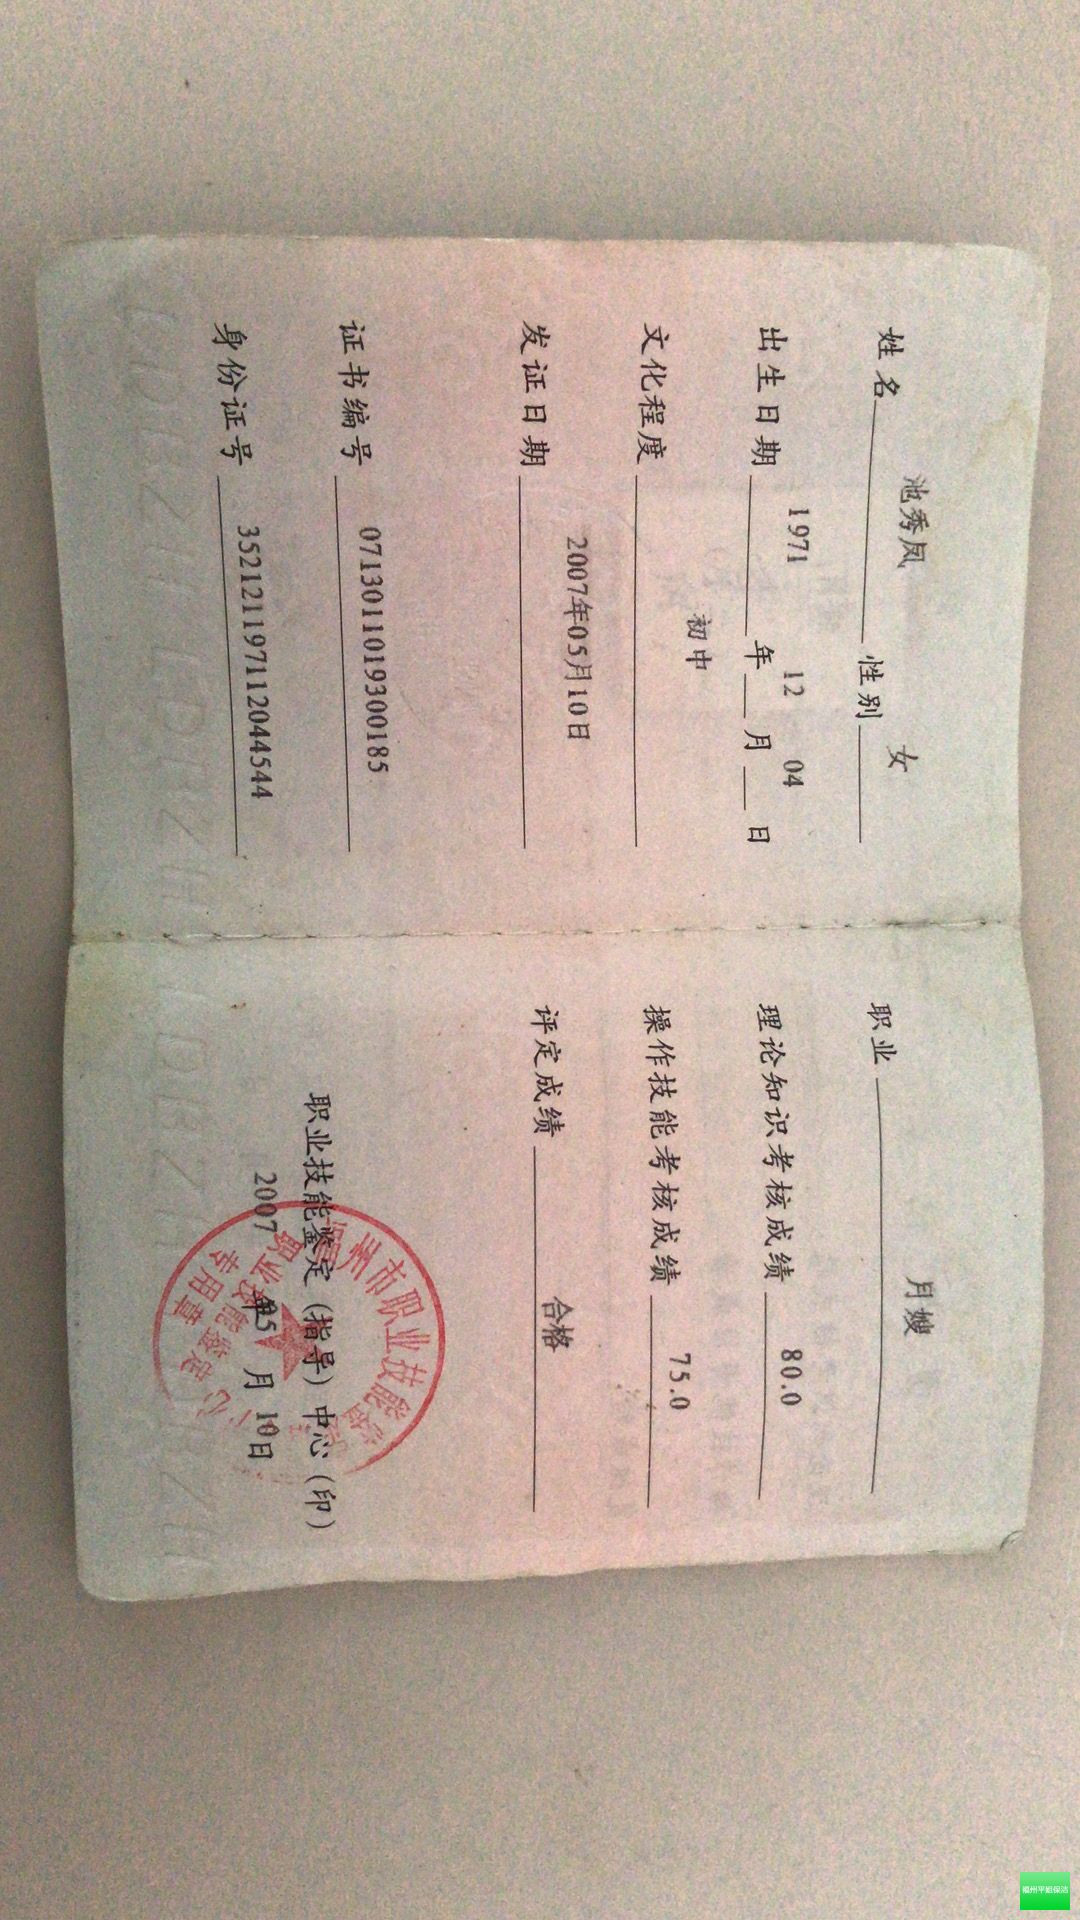 姓名 池秀凤 性别 女
出生日期 1971 年 12 月 04 日
文化程度 初中
发证日期 2007年05月10日
证书编号 0713011019300185
身份证号 352121197112044544
职业 月嫂
理论知识考核成绩 80.0
操作技能考核成绩 75.0
评定成绩 合格
职业技能鉴定（指导）中心（印）
2007 年 5 月 10 日
州市职业技能鉴
职业技能鉴定
专用章
福州平姐保洁